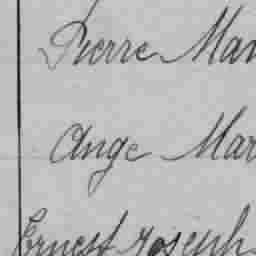 Pierre Mar
Ange Mar
Ernest Joseph